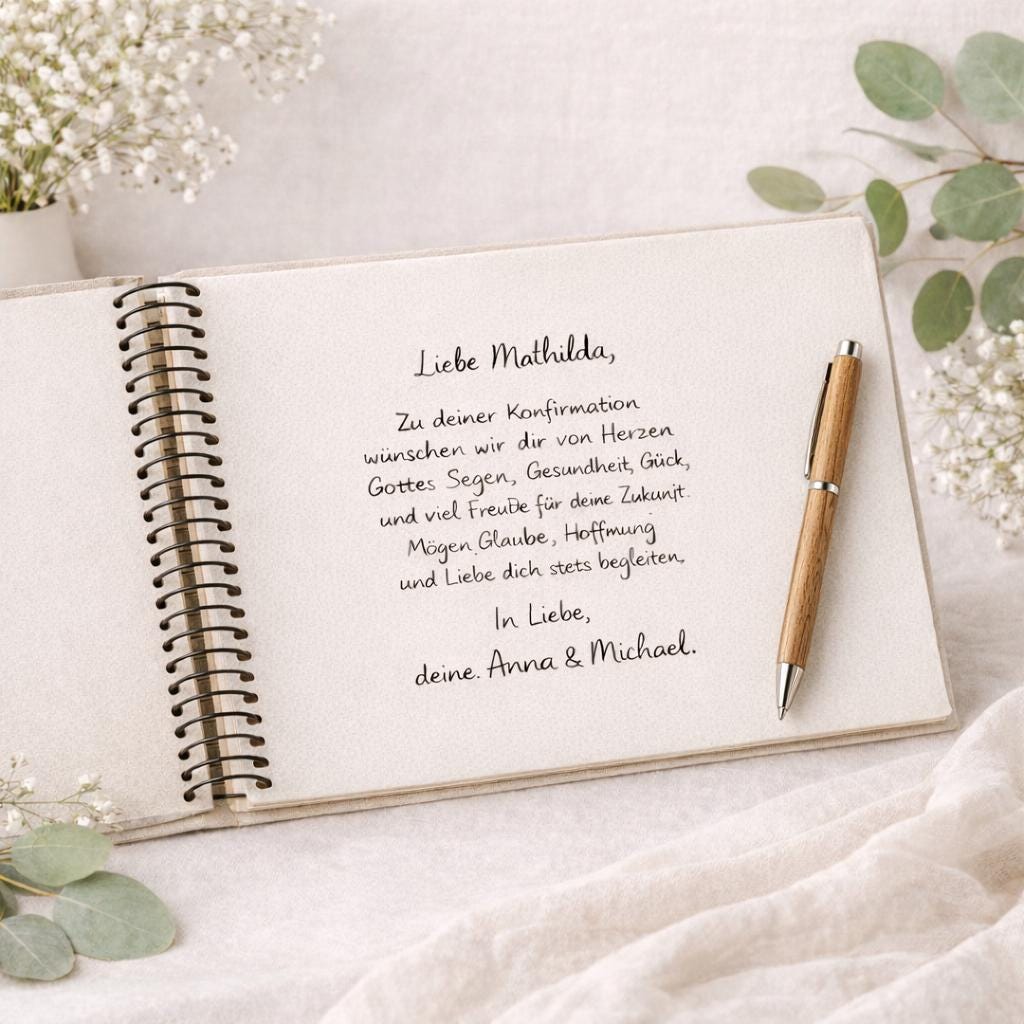 Liebe Mathilda,
Zu deiner Konfirmation
wünschen wir dir von Herzen
Gottes Segen, Gesundheit, Gück,
und viel Freuße für deine Zukunft.
Mögen Glaube, Hoffmung
und Liebe dich stets begleiten,
In Liebe,
deine. Anna & Michael.